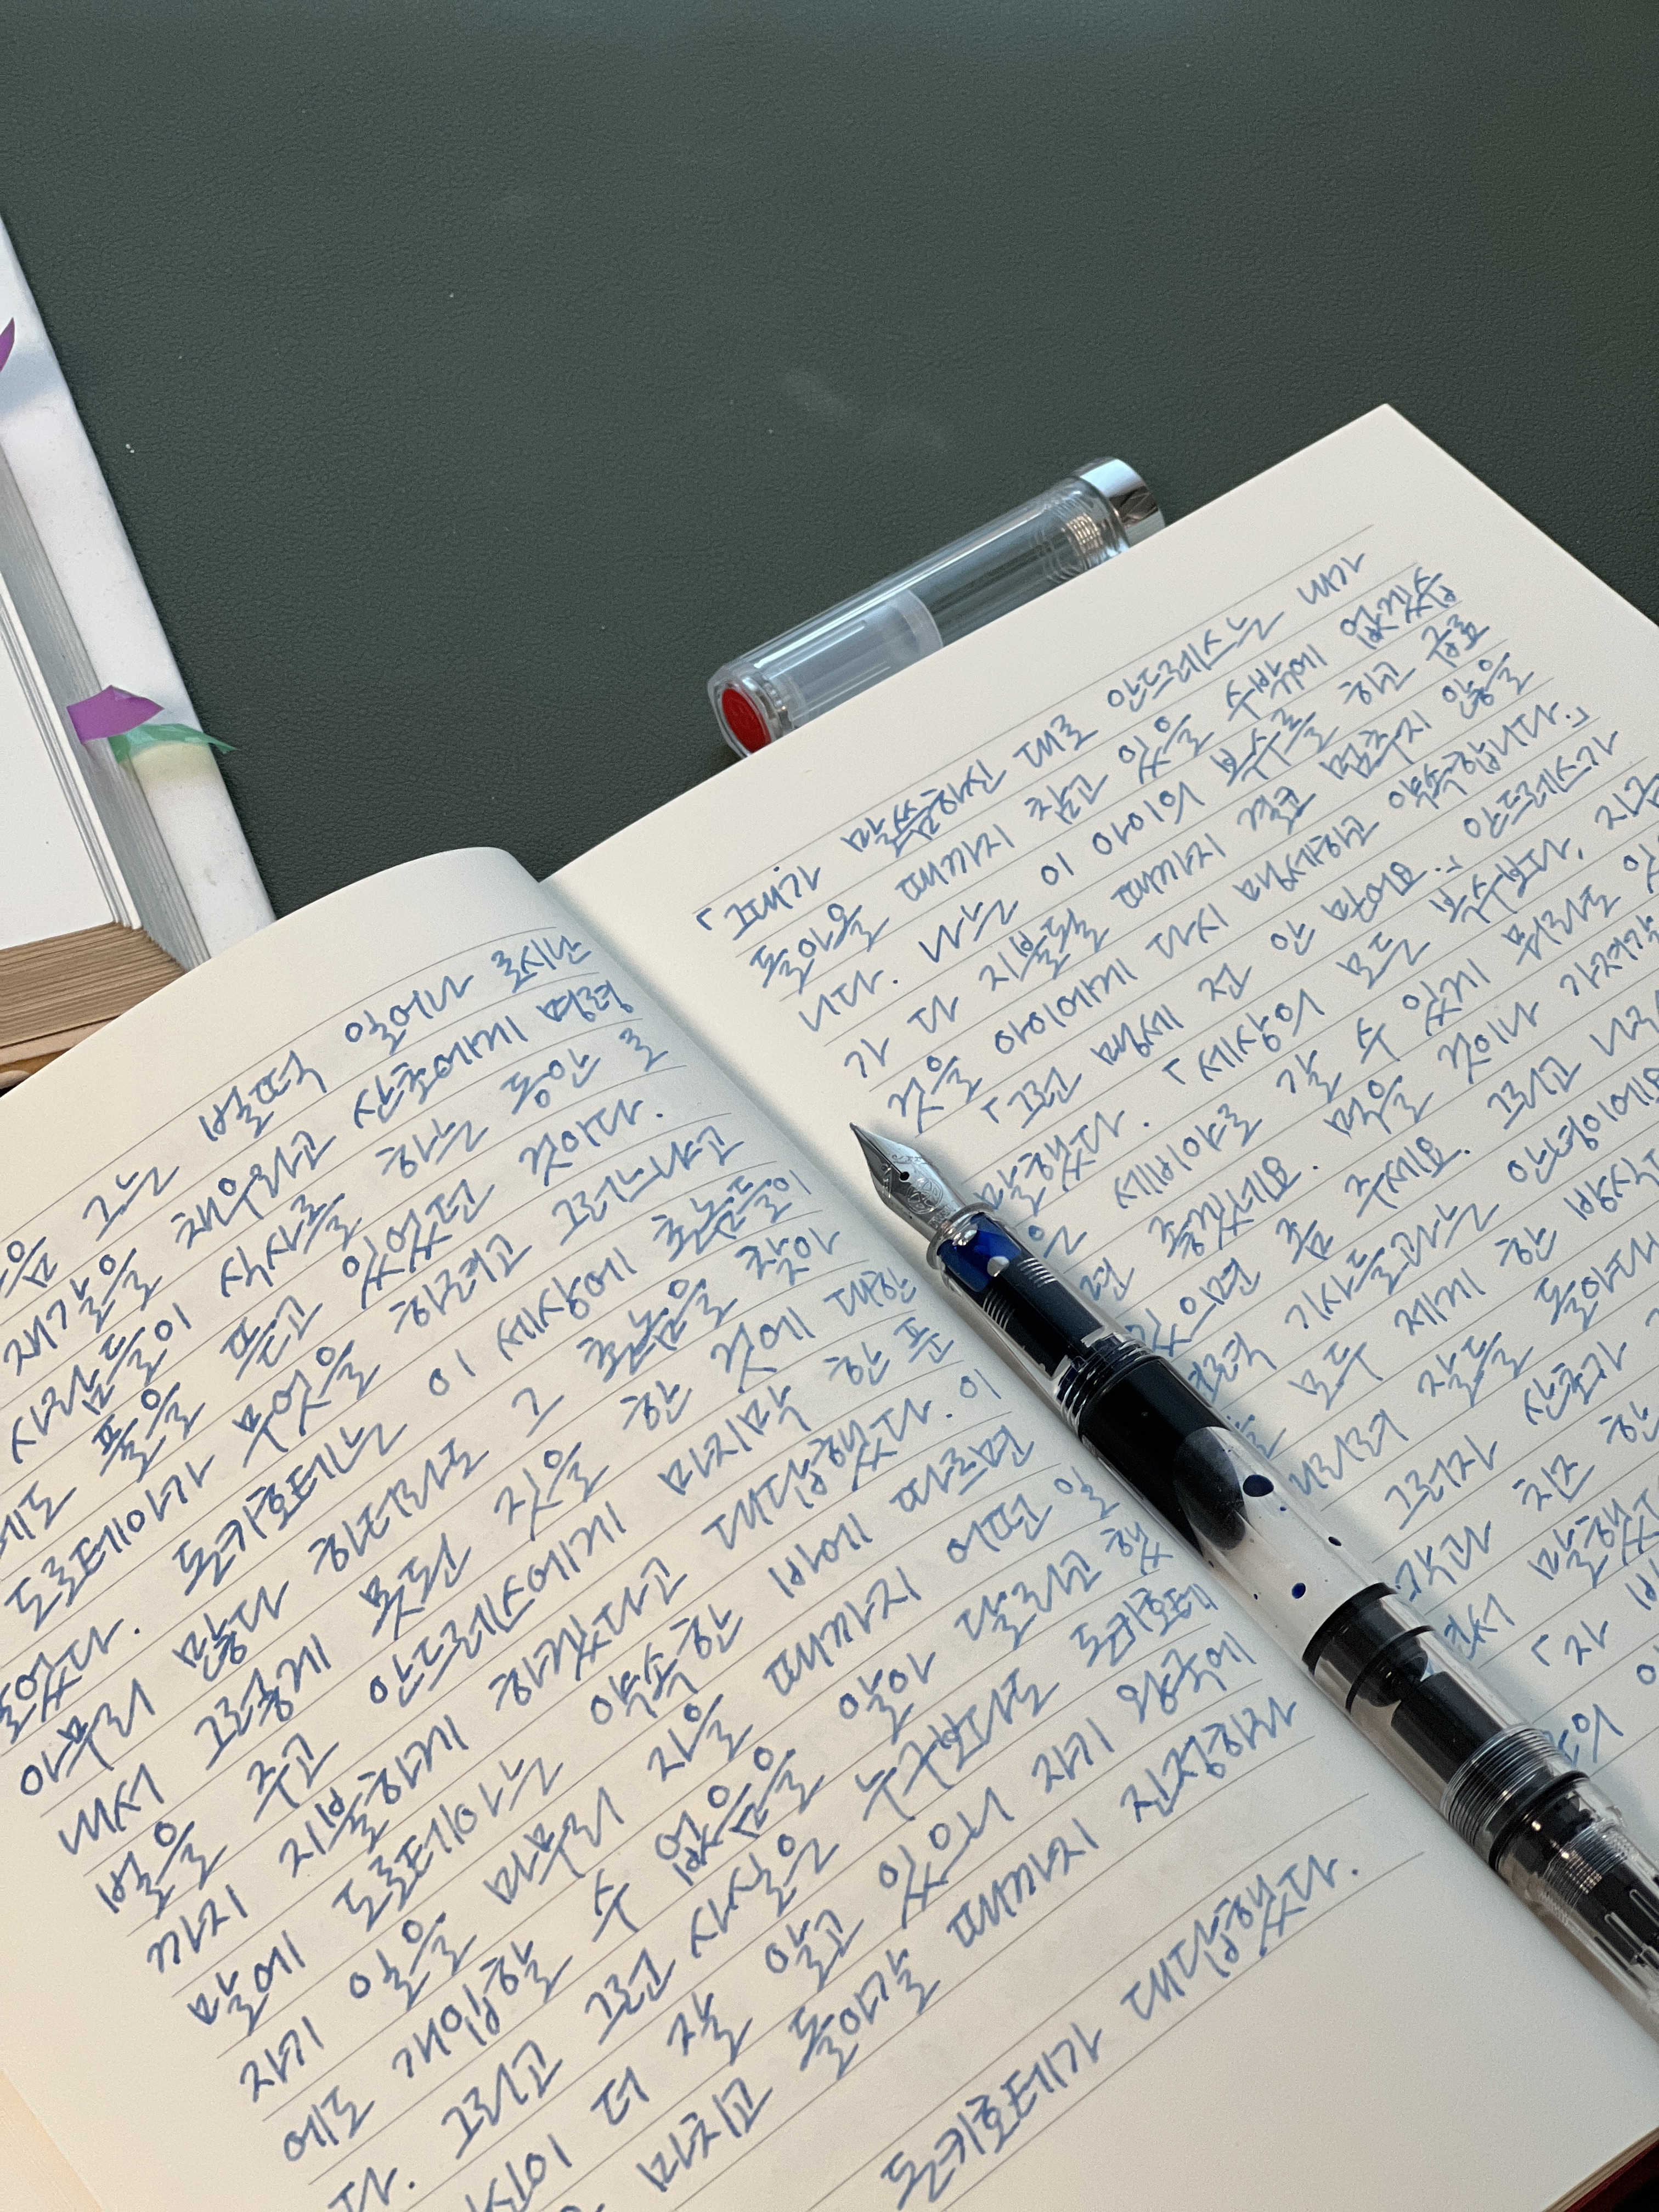 그는 벌떡 일어나 로시난
재갈을 채우라고 산초에게 명령
사람들이 식사를 하는 동안 로
도 풀을 뜯고 있었던 것이다.
도로테아가 무엇을 하려고 그러느냐고
물었다. 돈키호테는 이 세상에 혼쭐들이
아무리 많다 하더라도 그 혼쭐을 찾아
내서 그렇게 못된 짓을 한 것에 대한
벌을 주고 안드레스에게 마지막 한 푼
까지 지불하게 하겠다고 대답했다. 이
말에 도로테아는 약속한 바에 따르면
자기 일을 마무리 지을 때까지 어떤 일
에도 개입할 수 없음을 알아 달라고 했
다. 그리고 그런 사실은 누구보다도 돈키호테
더 잘 알고 있으니 자기 왕국에
마치고 돌아갈 때까지 진정하라
돈키호테가 대답했다.
「그대가 말씀하신 대로 안드레스는 내가
돌아올 때까지 참고 있을 수밖에 없겠습
니다. 나는 이 아이의 복수를 하고 급료
가 다 지불될 때까지 결코 멈추지 않을
것을 아이에게 다시 맹세하고 약속합니다.」
「그런 맹세 전 안 믿어요.」 안드레스가
말했다. 「세상의 모든 복수보다, 지금
은 세비야로 갈 수 있게 뭐라도
면 좋겠네요. 먹을 것이나 가져갈
있으면 좀 주세요. 그리고 나리
기사들과는 안녕이에요
모두 제게 한 방식
잘들 돌아다
그러자 산초가
치즈 한
말했
「자